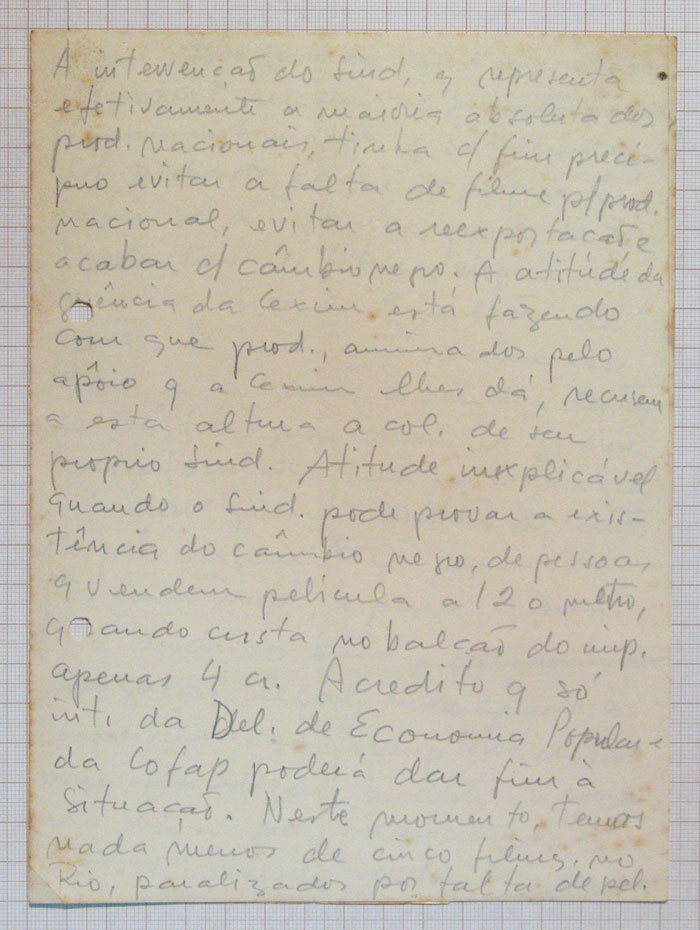 A intervenção do Sind, q representa
efetivamente a maioria absoluta dos
prod. nacionais, tinha c/ fim precí-
puo evitar a falta de filme p/ prod.
nacional, evitar a reexportação e
acabar c/ câmbio negro. A atitude da
gerência da Cexim está fazendo
com que prod., animados pelo
apôio q a Cexim lhes dá, recusem
a esta altura a col. de seu
proprio Sind. Atitude inexplicável
quando o Sind. pode provar a exis-
tência do câmbio negro, de pessoas
q vendem película a 12 o metro,
quando custa no balcão do imp.
apenas 4 cr. Acredito q só
int. da Del. de Economia Popular e
da Cofap poderá dar fim à
situação. Neste momento, temos
nada menos de cinco filmes, no
Rio, paralizados por falta de pel.